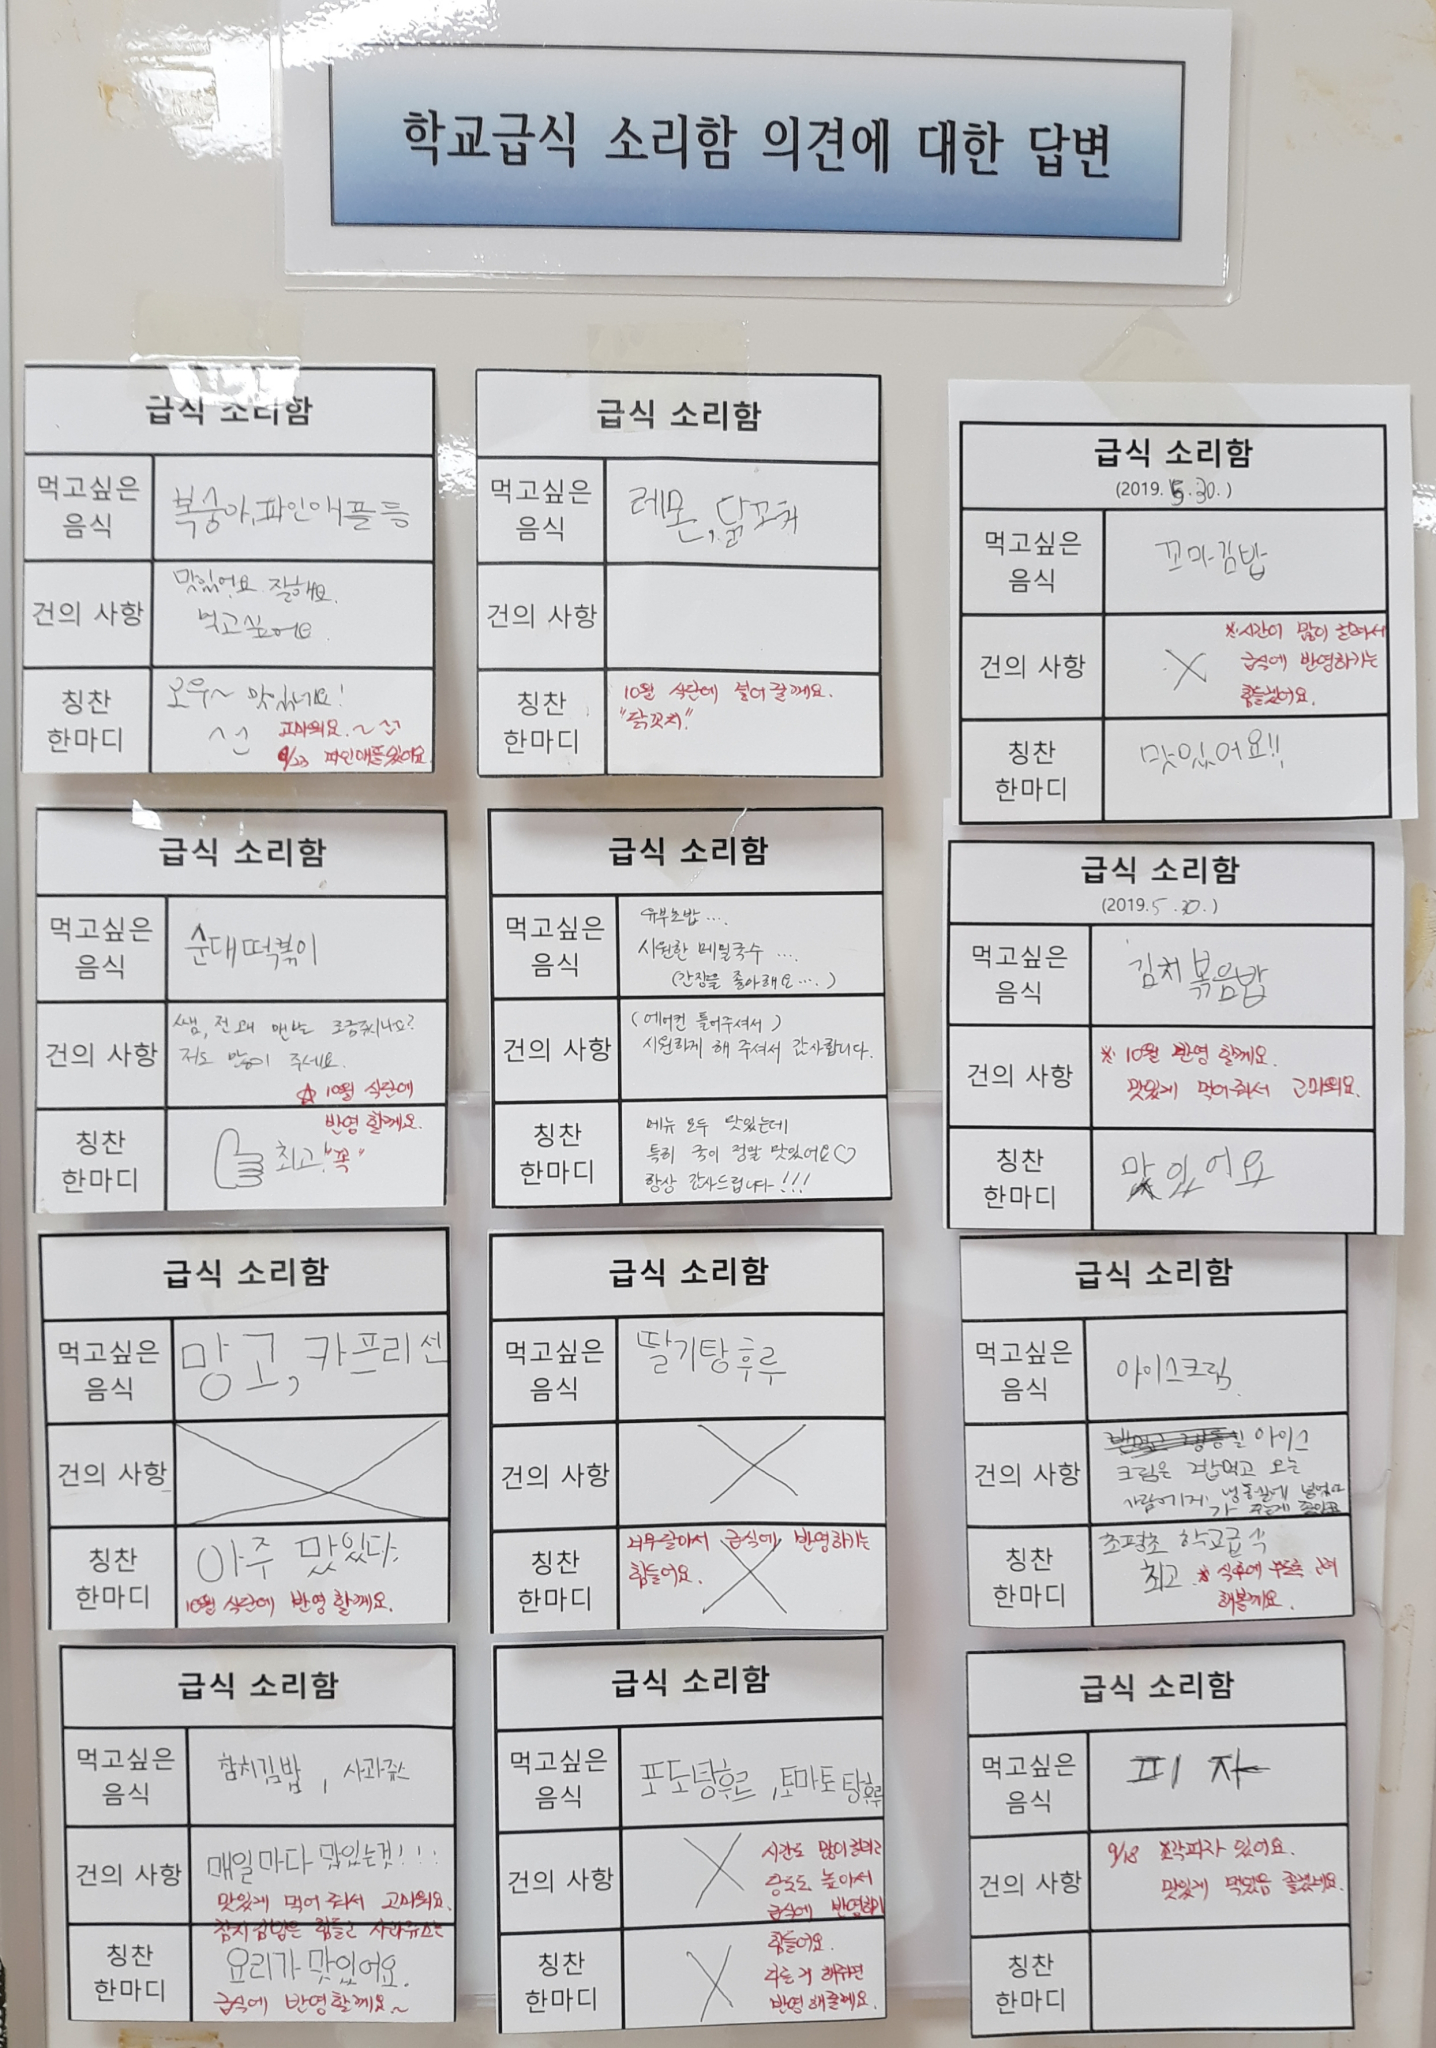 학교급식 소리함 의견에 대한 답변
급식 소리함
먹고싶은 음식
복숭아, 파인애플 등
건의 사항
맛있어요 잘해요.
먹고싶어요
칭찬 한마디
오우~ 맛있네요!
고마워요.~
9/23 파인애플있어요
급식 소리함
먹고싶은 음식
레몬, 닭꼬치
건의 사항
칭찬 한마디
10월 식단에 넣어 줄께요.
"닭꼬치"
급식 소리함
(2019. 5. 30.)
먹고싶은 음식
꼬마김밥
건의 사항
※시간이 많이 걸려서
급식에 반영하기는
힘들겠어요.
칭찬 한마디
맛있어요!!
급식 소리함
먹고싶은 음식
순대떡볶이
건의 사항
쌤, 전 왜 맨날 조금주시나요?
저도 많이 주세요.
☆ 10월 식단에
반영 할께요.
칭찬 한마디
최고 "꼭"
급식 소리함
먹고싶은 음식
유부초밥 ....
시원한 메밀국수 ....
(간장을 좋아해요....)
건의 사항
(에어컨 틀어주셔서)
시원하게 해 주셔서 감사합니다.
칭찬 한마디
메뉴 모두 맛있는데
특히 국이 정말 맛있어요♡
항상 감사드립니다!!!
급식 소리함
(2019. 5. 30.)
먹고싶은 음식
김치볶음밥
건의 사항
※ 10월 반영 할께요.
맛있게 먹어줘서 고마워요.
칭찬 한마디
맛있어요
급식 소리함
먹고싶은 음식
망고, 카프리썬
건의 사항
칭찬 한마디
아주 맛있다.
10월 식단에 반영 할께요.
급식 소리함
먹고싶은 음식
딸기탕후루
건의 사항
칭찬 한마디
너무달아서 급식에 반영하기는
힘들어요.
급식 소리함
먹고싶은 음식
아이스크림.
건의 사항
아이스
크림은 밥먹고 오는
사람에게 냉동실에 넣었다
가 주는게 좋아요
칭찬 한마디
초평초 학교급식
최고 ※ 식후에 부르도록
해볼께요.
급식 소리함
먹고싶은 음식
참치김밥, 사과쥬스
건의 사항
매일마다 맛있는것!!!
맛있게 먹어 줘서 고마워요.
참치김밥은 힘들고 사과쥬스는
칭찬 한마디
요리가 맛있어요.
급식에 반영할께요~
급식 소리함
먹고싶은 음식
포도탕후르, 토마토탕후루
건의 사항
시간도 많이걸리고
당도도 높아서
급식에 반영하기
칭찬 한마디
힘들어요.
다른거 해주면
반영 해줄께요.
급식 소리함
먹고싶은 음식
피자
건의 사항
9/18 조각피자 있어요.
맛있게 먹었음 좋겠네요.
칭찬 한마디